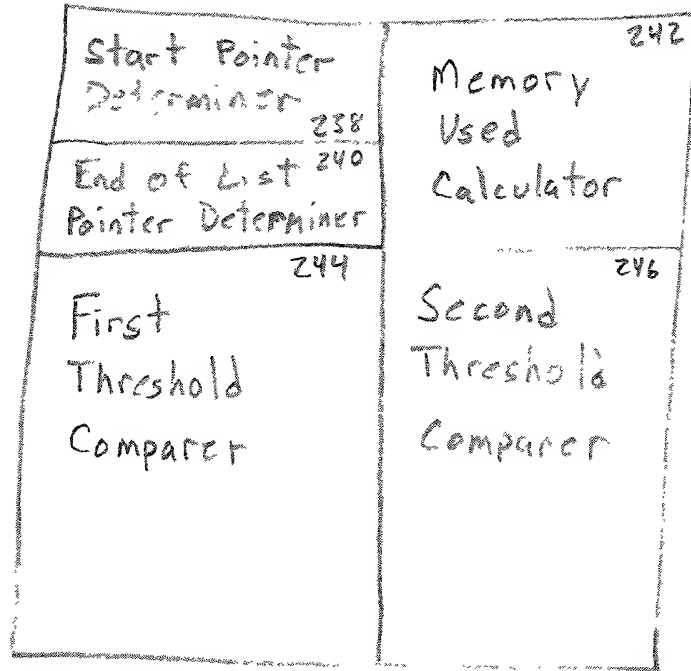 Start Pointer
Determiner
238
End of List 240
Pointer Determiner
242
Memory
Used
Calculator
244
First
Threshold
Comparer
246
Second
Threshold
Comparer